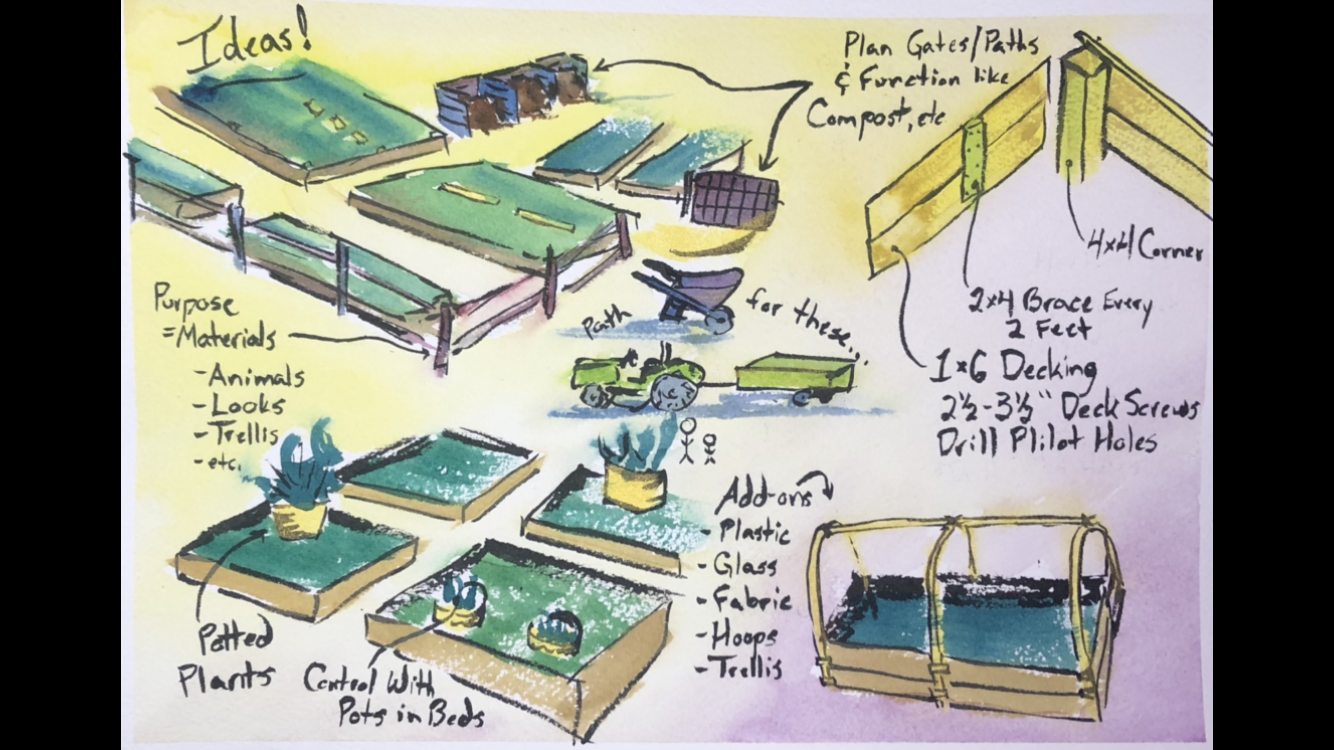 Ideas!
Plan Gates/Paths
& Function like
Compost, etc
4x4 Corner
2x4 Brace Every
2 Feet
1x6 Decking
2½-3½" Deck Screws
Drill Plilot Holes
Purpose
=Materials
-Animals
-Looks
-Trellis
-etc.
Path for these...
Add-ons
-Plastic
-Glass
-Fabric
-Hoops
-Trellis
Potted
Plants
Control With
Pots in Beds